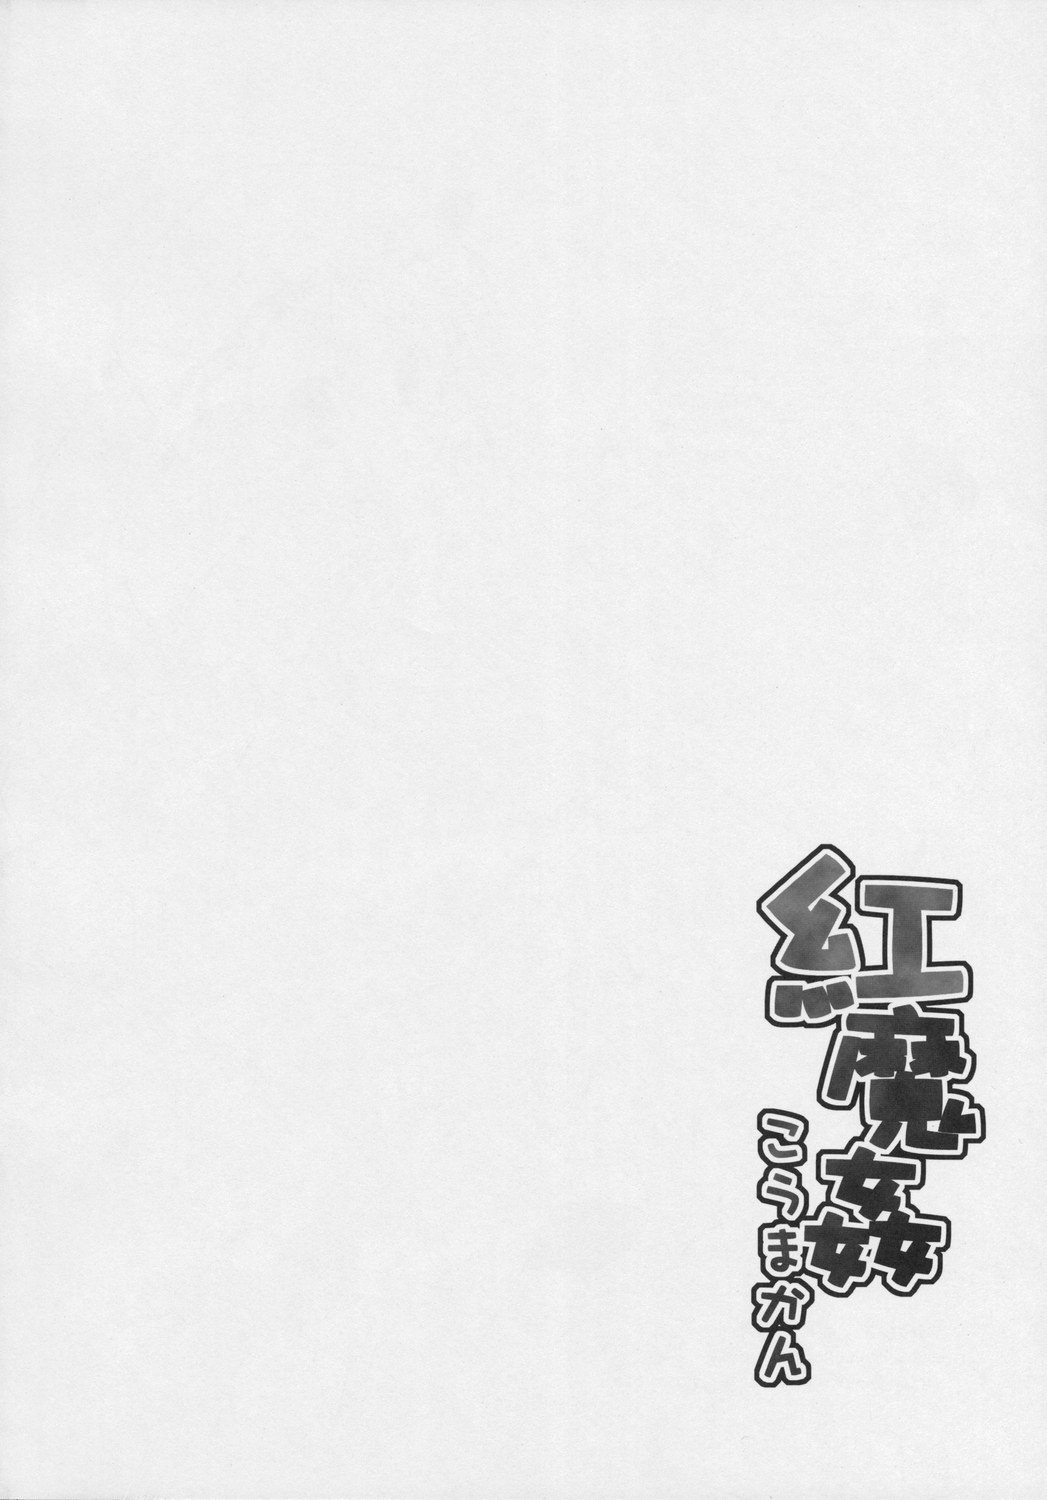 紅魔姦
こうまかん